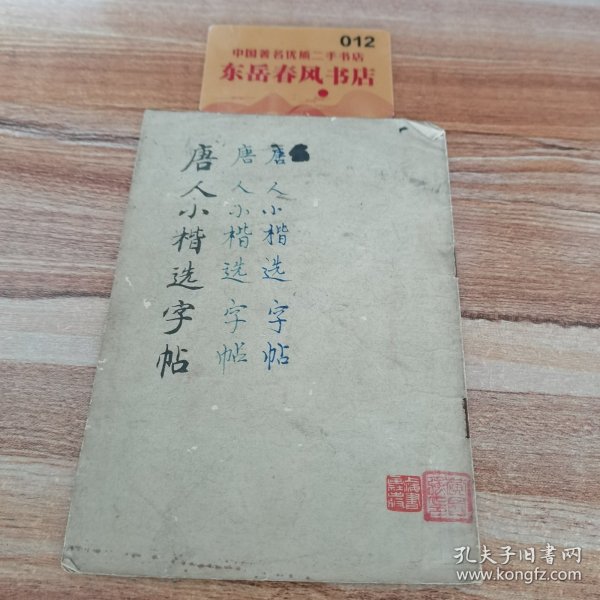 012
中国著名优质二手书店
东岳春风书店
唐人小楷选字帖
唐人小楷选字帖
唐人小楷选字帖
孔夫子旧书网
www.kongfz.com